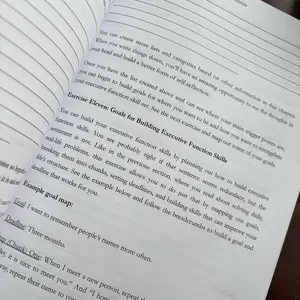 You can create more lists and categories based on other information in this chapter.
When you write things down, you'll have an amazing opportunity to see the thoughts in
your head and build a better form of self reflection.
Once you have the list created above and can see where your main trigger points are,
you can begin to build goals for where you want to be and how you want to strengthen
your executive function skill set. See the next exercise and map out some of your goals.
Exercise Eleven: Goals for Building Executive Function Skills
You can build your executive function skills by planning out how to build executive
function skills. You are probably right if that sentence seems redundant, but the
sentiment is not. Like in the previous section, where you read about solving daily,
real-life problems, this exercise allows you to do just that by mapping out goals,
breaking them into chunks, setting deadlines, and building skills that can improve your
life's structure. See the example below and follow the breadcrumbs to build a goal and
deadline that works for you.
Example goal map:
Goal: I want to remember people's names more often.
Deadline: Three months.
(Chunk) One: When I meet a new person, repeat
it is nice to meet you." And "I
repeat their name to you